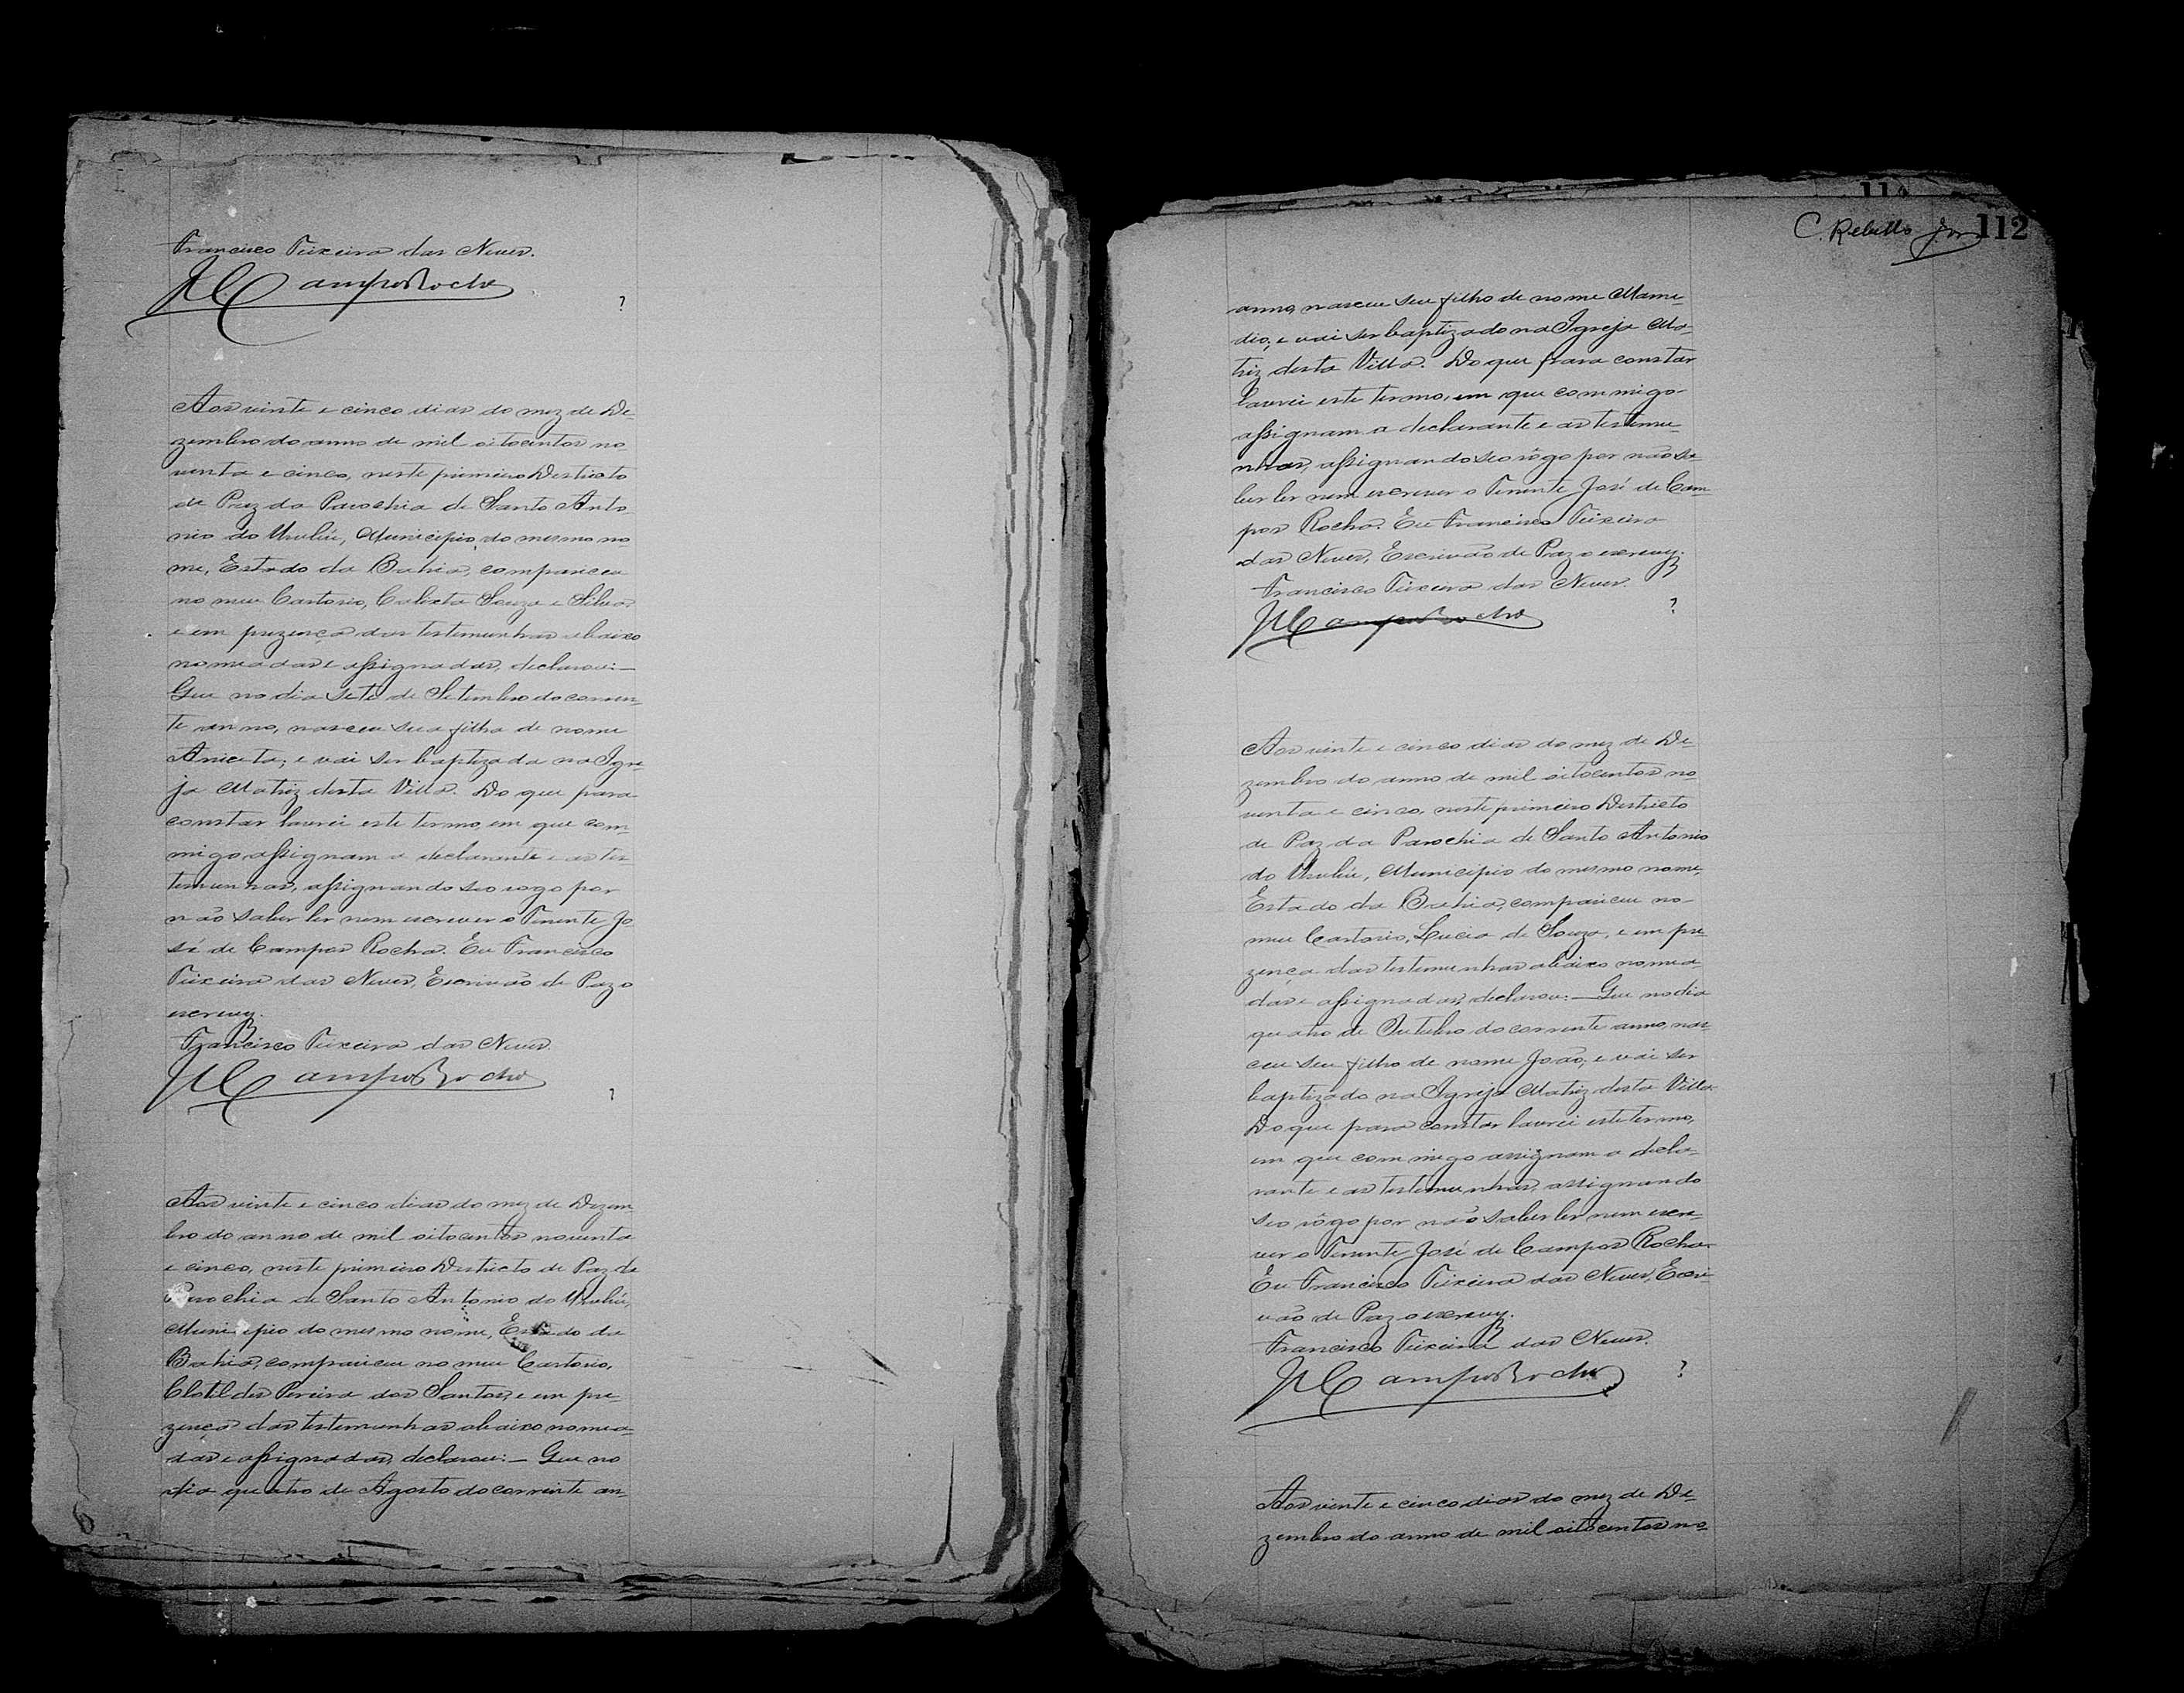 Francisco Teixeira das Neves.
JCCamposRocha
?
Aos vinte e cinco dias do mez de De-
zembro do anno de mil oitocentos no-
venta e cinco, neste primeiro Destricto
de Paz da Parochia de Santo Anto-
nio do Urubú, Municipio do mesmo no-
me, Estado da Bahia, compareceu
no meu Cartorio, Calixta Souza e Silva,
e em prezença das testemunhas abaixo
nomeadas e assignadas, declarou: —
Que no dia sete de Setembro do corren-
te anno, nasceu sua filha de nome
Aniceta; e vai ser baptizada na Igre-
ja Matriz desta Villa. Do que para
constar lavrei este termo, em que com-
migo assignam a declarante e as tes-
temunhas, assignando seo rogo por
não saber ler nem escrever o Tenente Jo-
sé de Campos Rocha. Eu Francisco
Teixeira das Neves, Escrivão de Paz o
escrevy.
Francisco Teixeira das Neves.
JCCamposRocha
Aos vinte e cinco dias do mez de Dezem
bro do anno de mil oitocentos noventa
e cinco, neste primeiro Destricto de Paz da
Parochia de Santo Antonio do Urubú,
Municipio do mesmo nome, Estado da
Bahia, compareceu no meu Cartorio,
Clotildes Pereira dos Santos, e em pre-
zença das testemunhas abaixo nomea-
das e assignadas, declarou: — Que no
dia quatro de Agosto do corrente an-
114
C. Rebello Jor 112
anno, nasceu seu filho de nome Mame-
dio; e vai ser baptizado na Igreja Ma-
triz desta Villa. Do que para constar
lavrei este termo, em que commigo
assignam a declarante e as testemu-
nhas, assignando seo rôgo por não sa-
ber ler nem escrever o Tenente José de Cam-
pos Rocha. Eu Francisco Teixeira
das Neves, Escrivão de Paz o escrevy.
Francisco Teixeira das Neves.
JCCamposRocha
?
Aos vinte e cinco dias do mez de De-
zembro do anno de mil oitocentos no-
venta e cinco, neste primeiro Destricto
de Paz da Parochia de Santo Antonio
do Urubú, Municipio do mesmo nome,
Estado da Bahia, compareceu no
meu Cartorio, Lucia de Souza, e em pre-
zença das testemunhas abaixo nomea-
das e assignadas, declarou: — Que no dia
quatro de Outubro do corrente anno, nas-
ceu seu filho de nome João; e vai ser
baptizado na Igreja Matriz desta Villa.
Do que para constar lavrei este termo,
em que commigo assignam a decla-
rante e as testemunhas, assignando
seo rôgo por não saber ler nem escre-
ver o Tenente José de Campos Rocha.
Eu Francisco Teixeira das Neves, Escri-
vão de Paz o escrevy.
Francisco Teixeira das Neves.
JCCamposRocha
?
Aos vinte e cinco dias do mez de De-
zembro do anno de mil oitocentos no-